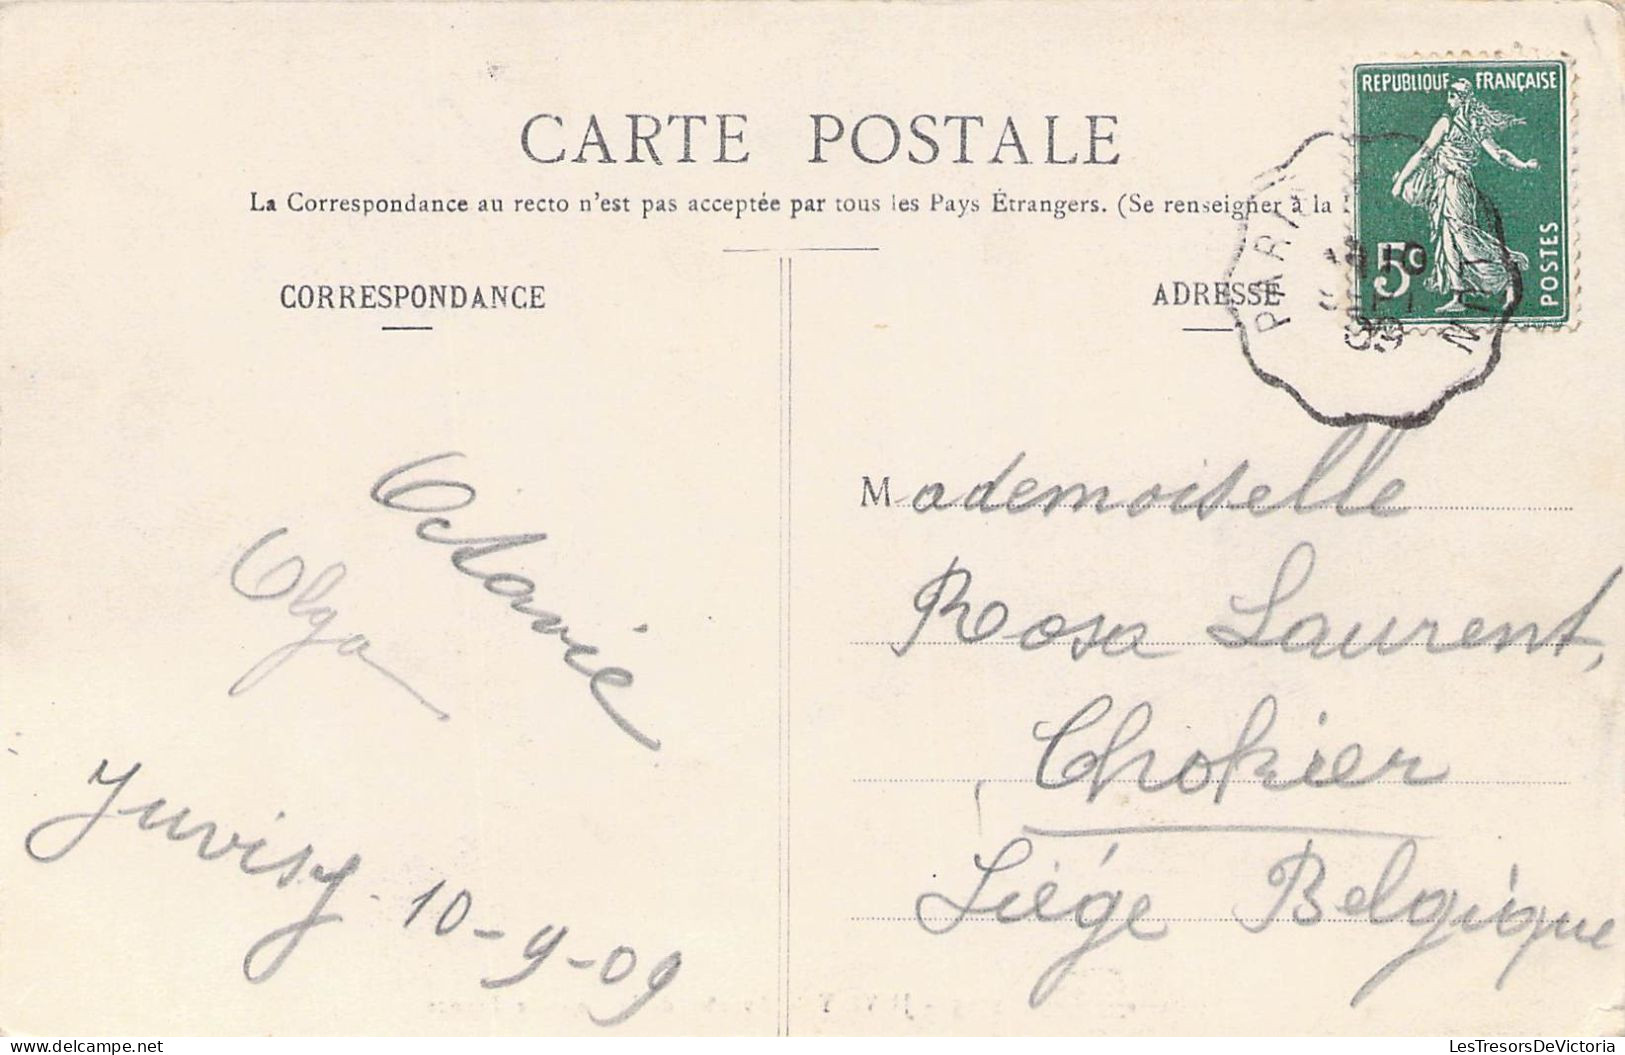 REPUBLIQUE FRANÇAISE
CARTE POSTALE
La Correspondance au recto n'est pas acceptée par tous les Pays Étrangers. (Se renseigner à la
5c
POSTES
PARIS
10
09
CORRESPONDANCE
ADRESSE
Octavie
Olga
Juvisy - 10-9-09
Mademoiselle
Rosa Laurent,
Chokier
Liége Belgique
LesTresorsDeVictoria